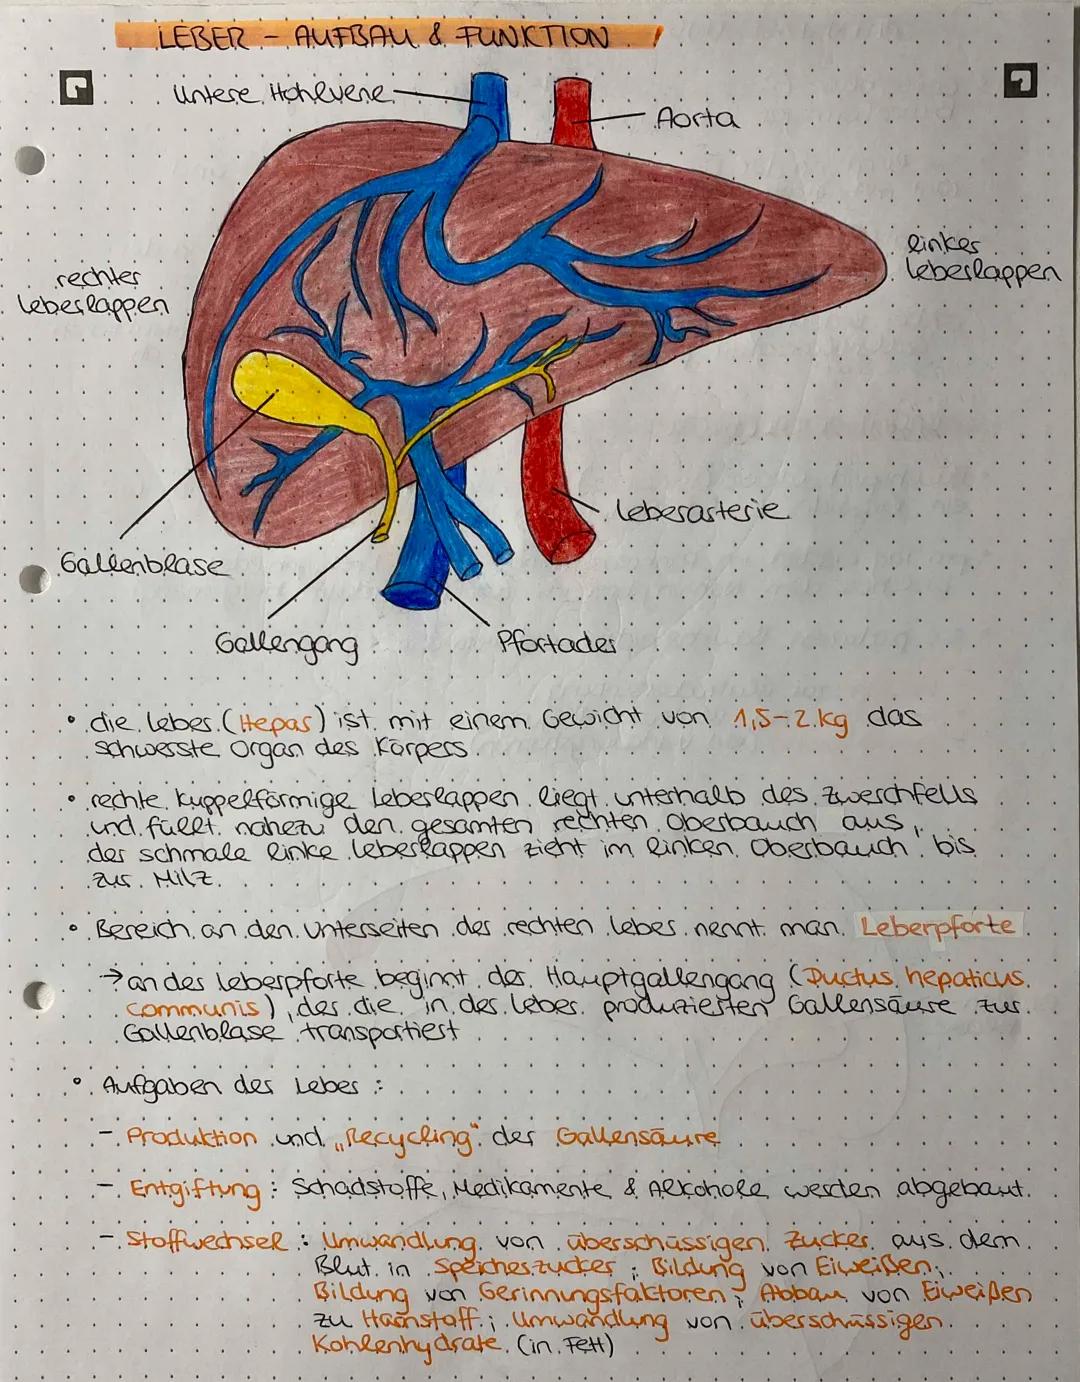 LEBER - AUFBAU & FUNKTION
Untere Hohlvene
Aorta
rechter
Leberlappen
linker
Leberlappen
Leberarterie
Gallenblase
Gallengang
Pfortader
• die Leber (Hepar) ist mit einem Gewicht von 1,5-2 kg das
schwerste Organ des Körpers
• rechte kuppelförmige Leberlappen liegt unterhalb des Zwerchfells
und füllt nahezu den gesamten rechten Oberbauch aus,
der schmale linke Leberlappen zieht im linken Oberbauch bis
zur Milz.
• Bereich an den Unterseiten der rechten Leber nennt man Leberpforte
→ an der Leberpforte beginnt der Hauptgallengang (Ductus hepaticus
communis), der die in der Leber produzierten Gallensäure zur
Gallenblase transportiert
• Aufgaben der Leber:
- Produktion und „Recycling" der Gallensäure
- Entgiftung: Schadstoffe, Medikamente & Alkohole werden abgebaut.
- Stoffwechsel: Umwandlung von überschüssigen Zucker aus dem
Blut in Speicherzucker; Bildung von Eiweißen;
Bildung von Gerinnungsfaktoren; Abbau von Eiweißen
zu Harnstoff; Umwandlung von überschüssigen
Kohlenhydrate (in Fett)